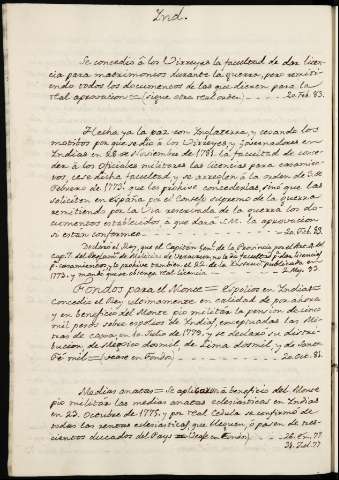 Ind.
Se concedió â los Virreyes la facultad de dar licen
cia para matrimonios durante la guerra, pero remiti-
endo todos los documentos de las que dieren para la
real aprovacion = (sigue otra real orden) - - - - 20. Feb. 83.
Hecha ya la paz con Inglaterra, y cesando los
motibos por que se dió â los Virreyes y Governadores en
Indias en 28 de Noviembre de 1781. la facultad de conce-
der â los oficiales militares las licencias para casamien-
tos, cese dicha facultad, y se arreglen â la orden de 5. de
Febrero de 1773. que les prohive concederlas, sino que las
soliciten en España por el Consejo supremo de la guerra
remitiendo por la Via reservada de la guerra los do-
cumentos establecidos â que dará S.M. la aprovacion
si estan conformes - - - - 20. Feb. 83.
Declaró el Rey, que el Capitan Gen.l de la Provincia por el
cap.º 7. del Reglam.to de Milicias de Veracruz no la da facultad p.a dar licencias
p.a casamientos, y
1773. y manda que se obtenga real licencia - - 2. May. 93.
Fondos para el Monte = Espolios en Indias =
Concedio el Rey ultimamente en calidad de por âhora
y en beneficio del Monte pio militar la pension de cinco
mil pesos sobre espolios de Indias, exceptuadas las Mi-
tras de en 10. Julio de 1779. y se declaró su distri-
bucion de Mexico dos mil, de Lima dos mil y de Santa
Fé mil = (vease en Fondos) - - - - 20. Oct. 81.
Medias anatas = Se aplicaron â beneficio del Monte
pio militar las medias anatas eclesiasticas en Indias
en 23. Octubre de 1775. y por real Cedula se confirmó de
todas las rentas eclesiasticas que lleguen, ô pasen de tres-
cientos ducados del Pays = (vease en Fondos) - - 26. En. 77
31. Jul. 77